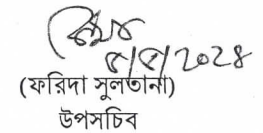 ৫/৫/2024
(ফরিদা সুলতানা)
উপসচিব